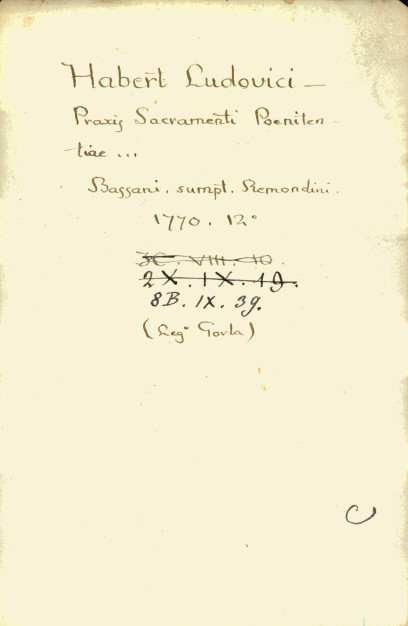 Habert Ludovici —
Praxis Sacramenti Poeniten-
tiae ...
Bassani. sumpt. Remondini.
1770. 12°
3C. VIII. 10.
2X. IX. 19.
8B. IX. 39.
(Leg° Gorla)
C